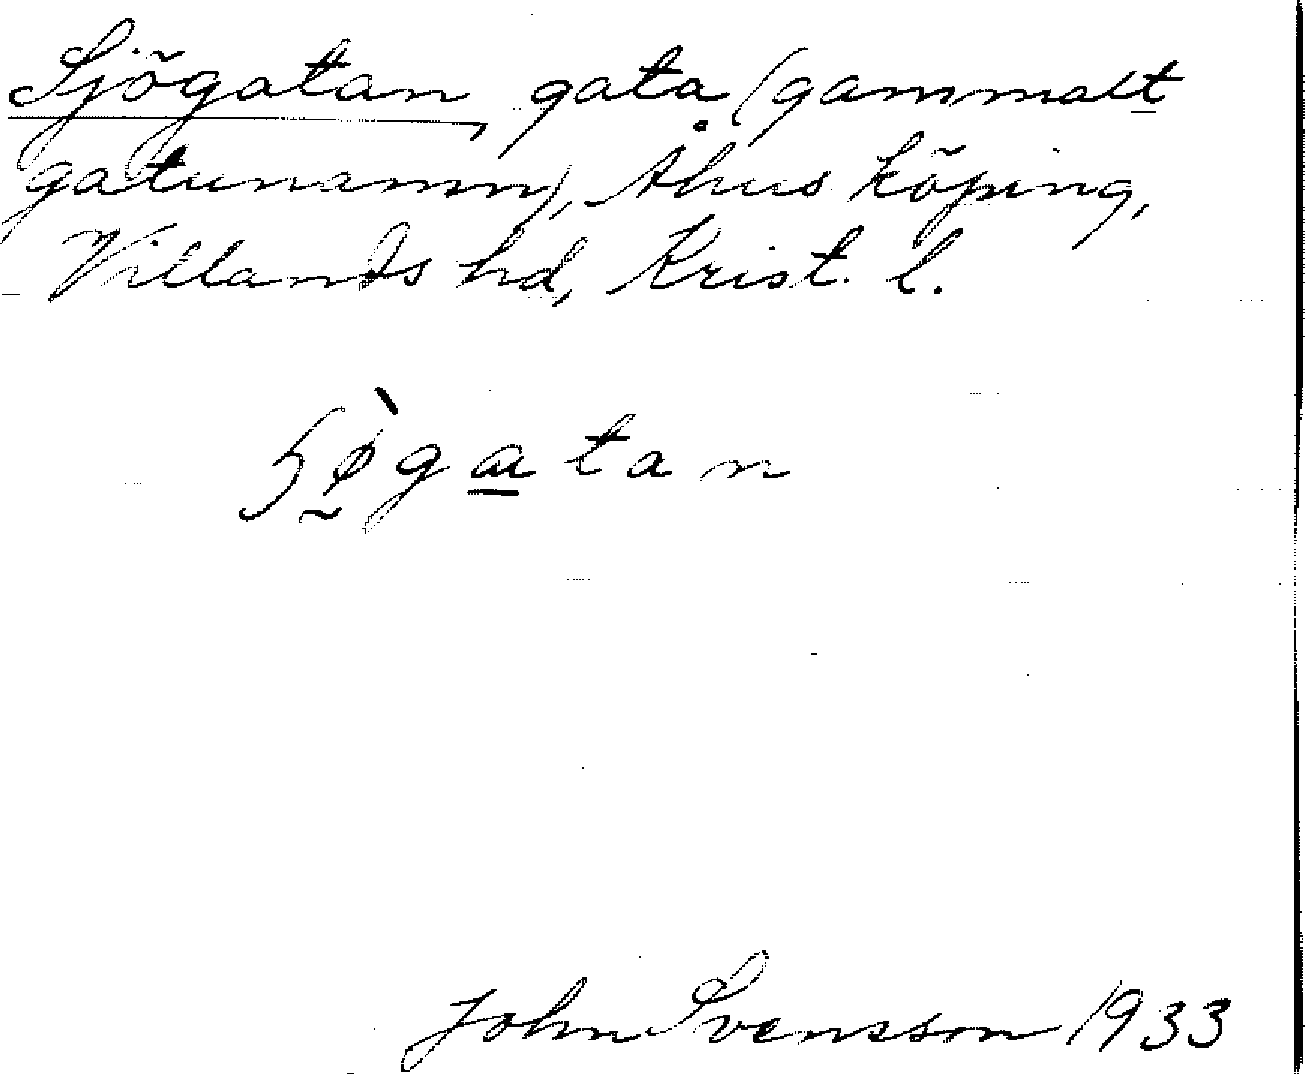 Sjögatan, gata (gammalt
gatunamn), Åhus köping,
Villands hd, Krist. l.
ʃø̰̀ga̲tan
John Svensson 1933